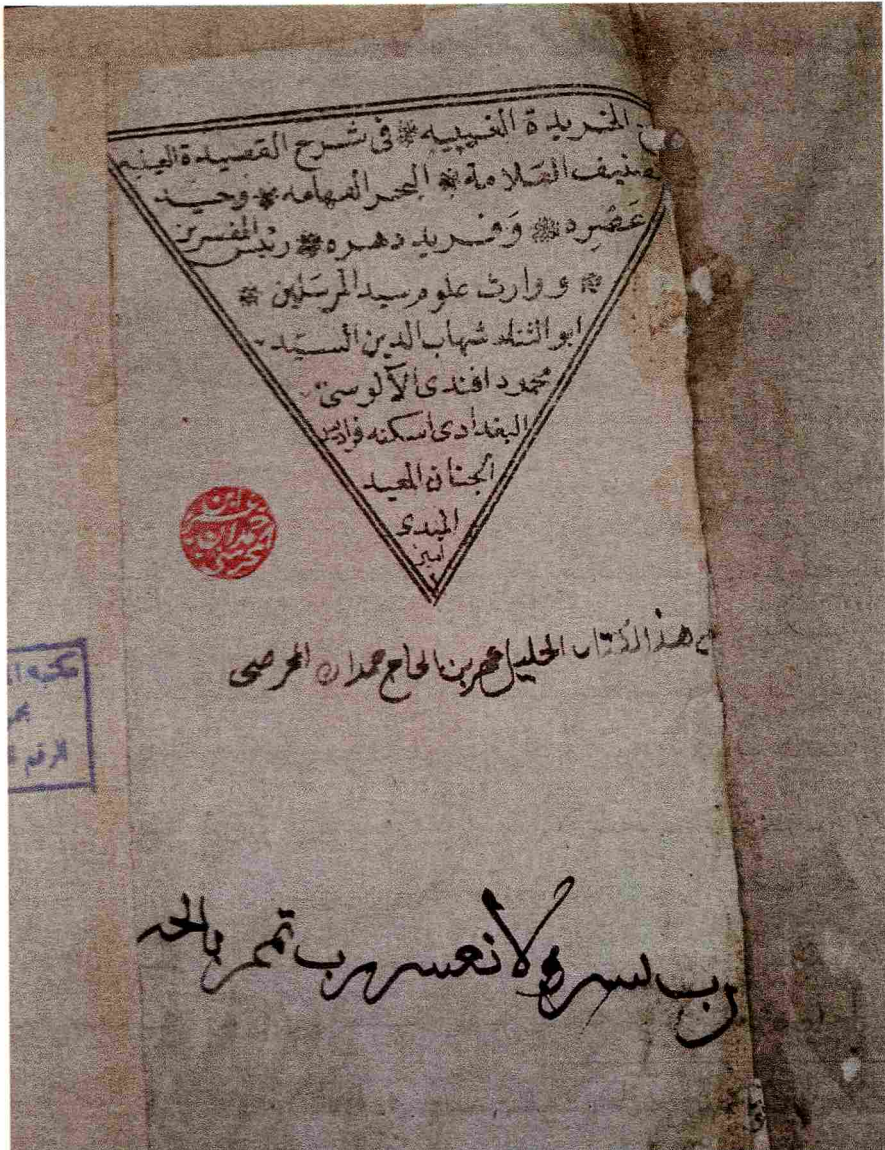 الخريدة الغيبيه في شرح القصيدة العينيه
تصنيف العلامة البحر الفهامه وحيد
عصره وفريد دهره رئيس المفسرين
ووارث علوم سيد المرسلين
ابو الثناء شهاب الدين السيد
محمود افندى الآلوسى
البغدادى اسكنه فراديس
الجنان المعيد
المبدى
امين
هذا الكتاب الجليل بن الحاج حمدان
رب يسر ولا تعسر رب تمم بالخير
مكتبة
الرقم